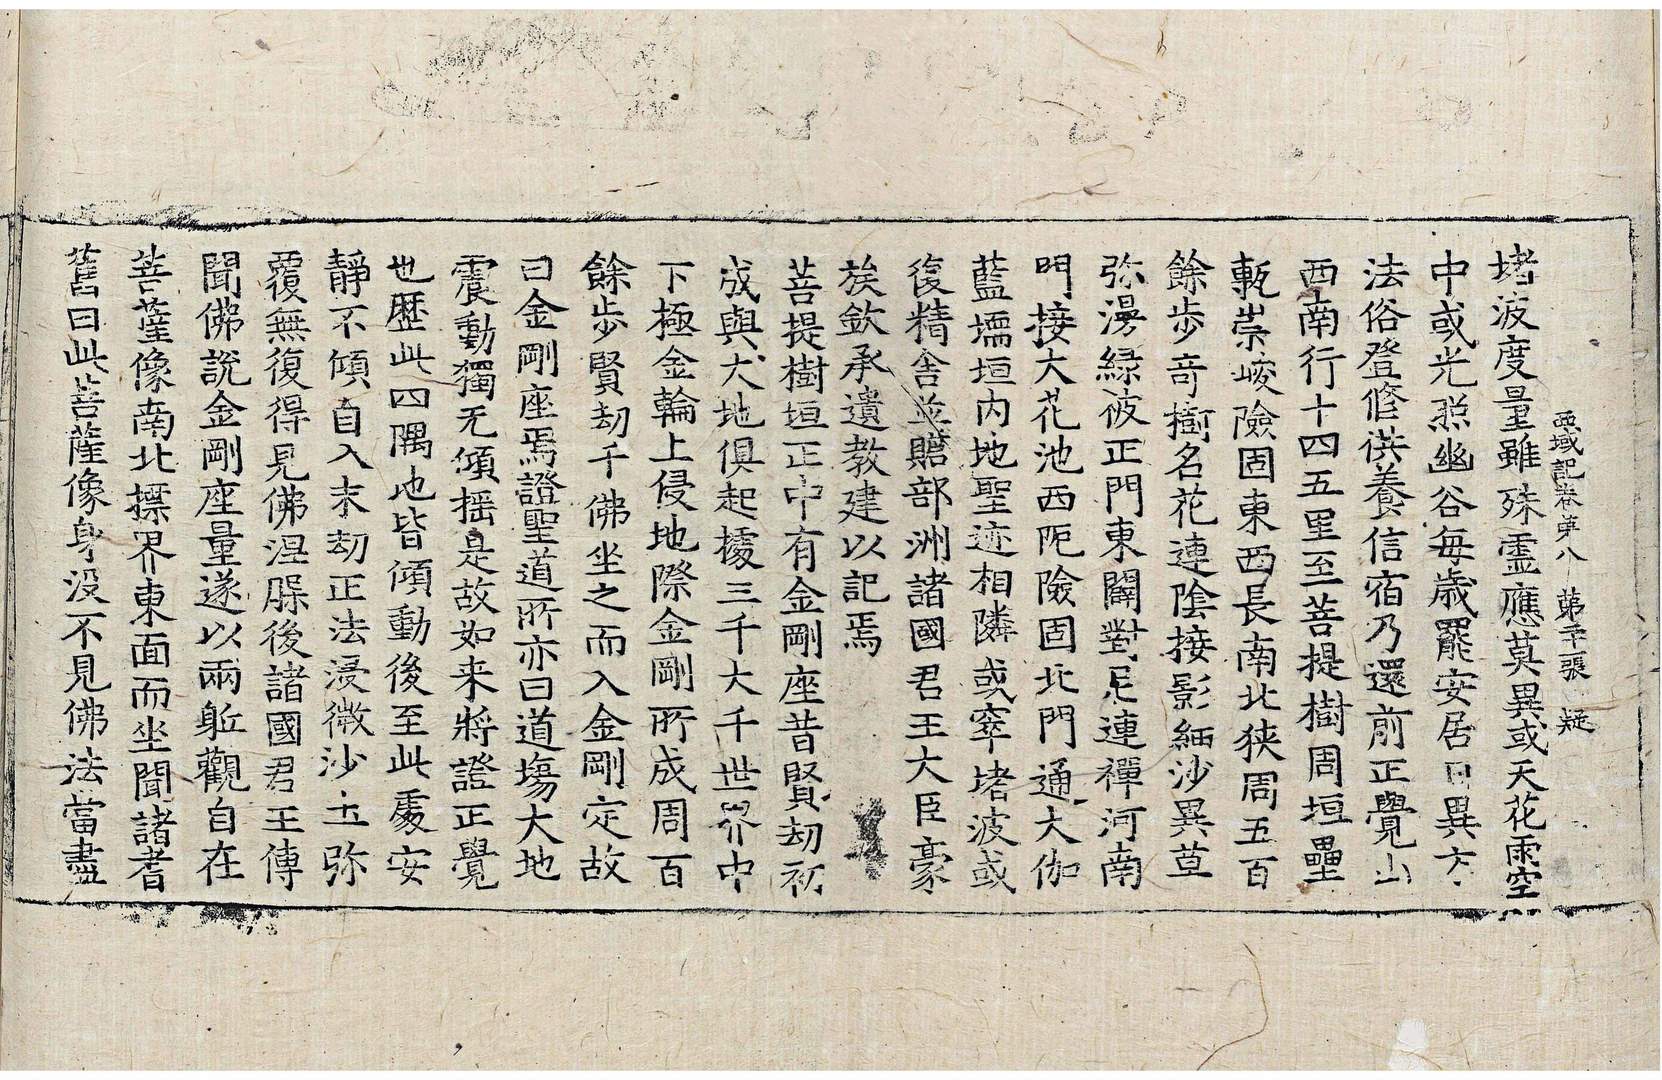 西域記卷第八 第二十張 疑
堵波度量雖殊靈應莫異或天花雨空
中或光照幽谷每歲罷安居日異方
法俗登修供養信宿乃還前正覺山
西南行十四五里至菩提樹周垣壘
甎崇峻險固東西長南北狹周五百
餘步奇樹名花連陰接影細沙異草
弥漫緑被正門東闢對尼連禪河南
門接大花池西阨險固北門通大伽
藍壖垣內地聖迹相隣或窣堵波或
復精舍並贍部洲諸國君王大臣豪
族欽承遺教建以記焉
菩提樹垣正中有金剛座昔賢劫初
成與大地俱起據三千大千世界中
下極金輪上侵地際金剛所成周百
餘步賢劫千佛坐之而入金剛定故
曰金剛座焉證聖道所亦曰道場大地
震動獨无傾搖是故如来將證正覺
也歷此四隅地皆傾動後至此處安
靜不傾自入末劫正法浸微沙土弥
覆無復得見佛涅槃後諸國君王傳
聞佛說金剛座量遂以兩軀觀自在
菩薩像南北摽界東面而坐聞諸耆
舊曰此菩薩像身没不見佛法當盡